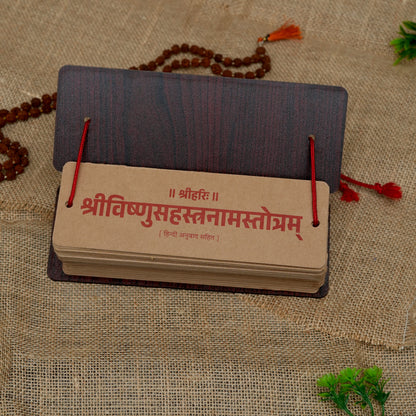 ॥ श्रीहरिः ॥
श्रीविष्णुसहस्त्रनामस्तोत्रम्
( हिन्दी अनुवाद सहित )